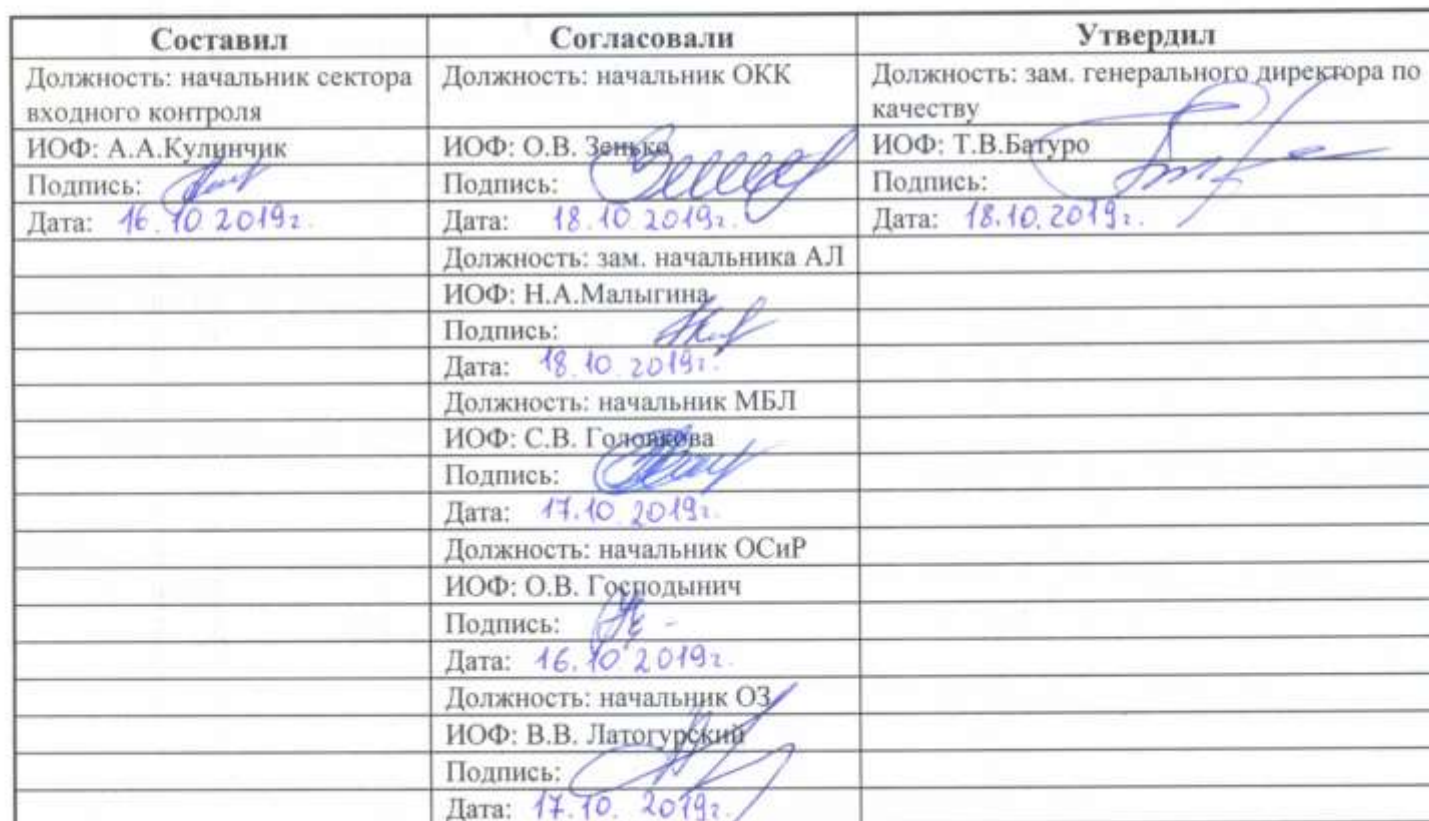 Составил Согласовали Утвердил
Должность: начальник сектора входного контроля Должность: начальник ОКК Должность: зам. генерального директора по качеству
ИОФ: А.А.Кулинчик ИОФ: О.В. Зенько ИОФ: Т.В.Батуро
Подпись: Подпись: Подпись:
Дата: 16.10.2019г. Дата: 18.10.2019г. Дата: 18.10.2019г.
Должность: зам. начальника АЛ
ИОФ: Н.А.Малыгина
Подпись:
Дата: 18.10.2019г.
Должность: начальник МБЛ
ИОФ: С.В. Головкова
Подпись:
Дата: 17.10.2019г.
Должность: начальник ОСиР
ИОФ: О.В. Господынич
Подпись:
Дата: 16.10.2019г.
Должность: начальник ОЗ
ИОФ: В.В. Латогурский
Подпись:
Дата: 17.10.2019г.